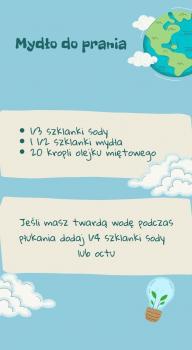 Mydło do prania
• 1/3 szklanki sody
• 1 1/2 szklanki mydła
• 20 kropli olejku miętowego
Jeśli masz twardą wodę podczas
płukania dodaj 1/4 szklanki sody
lub octu